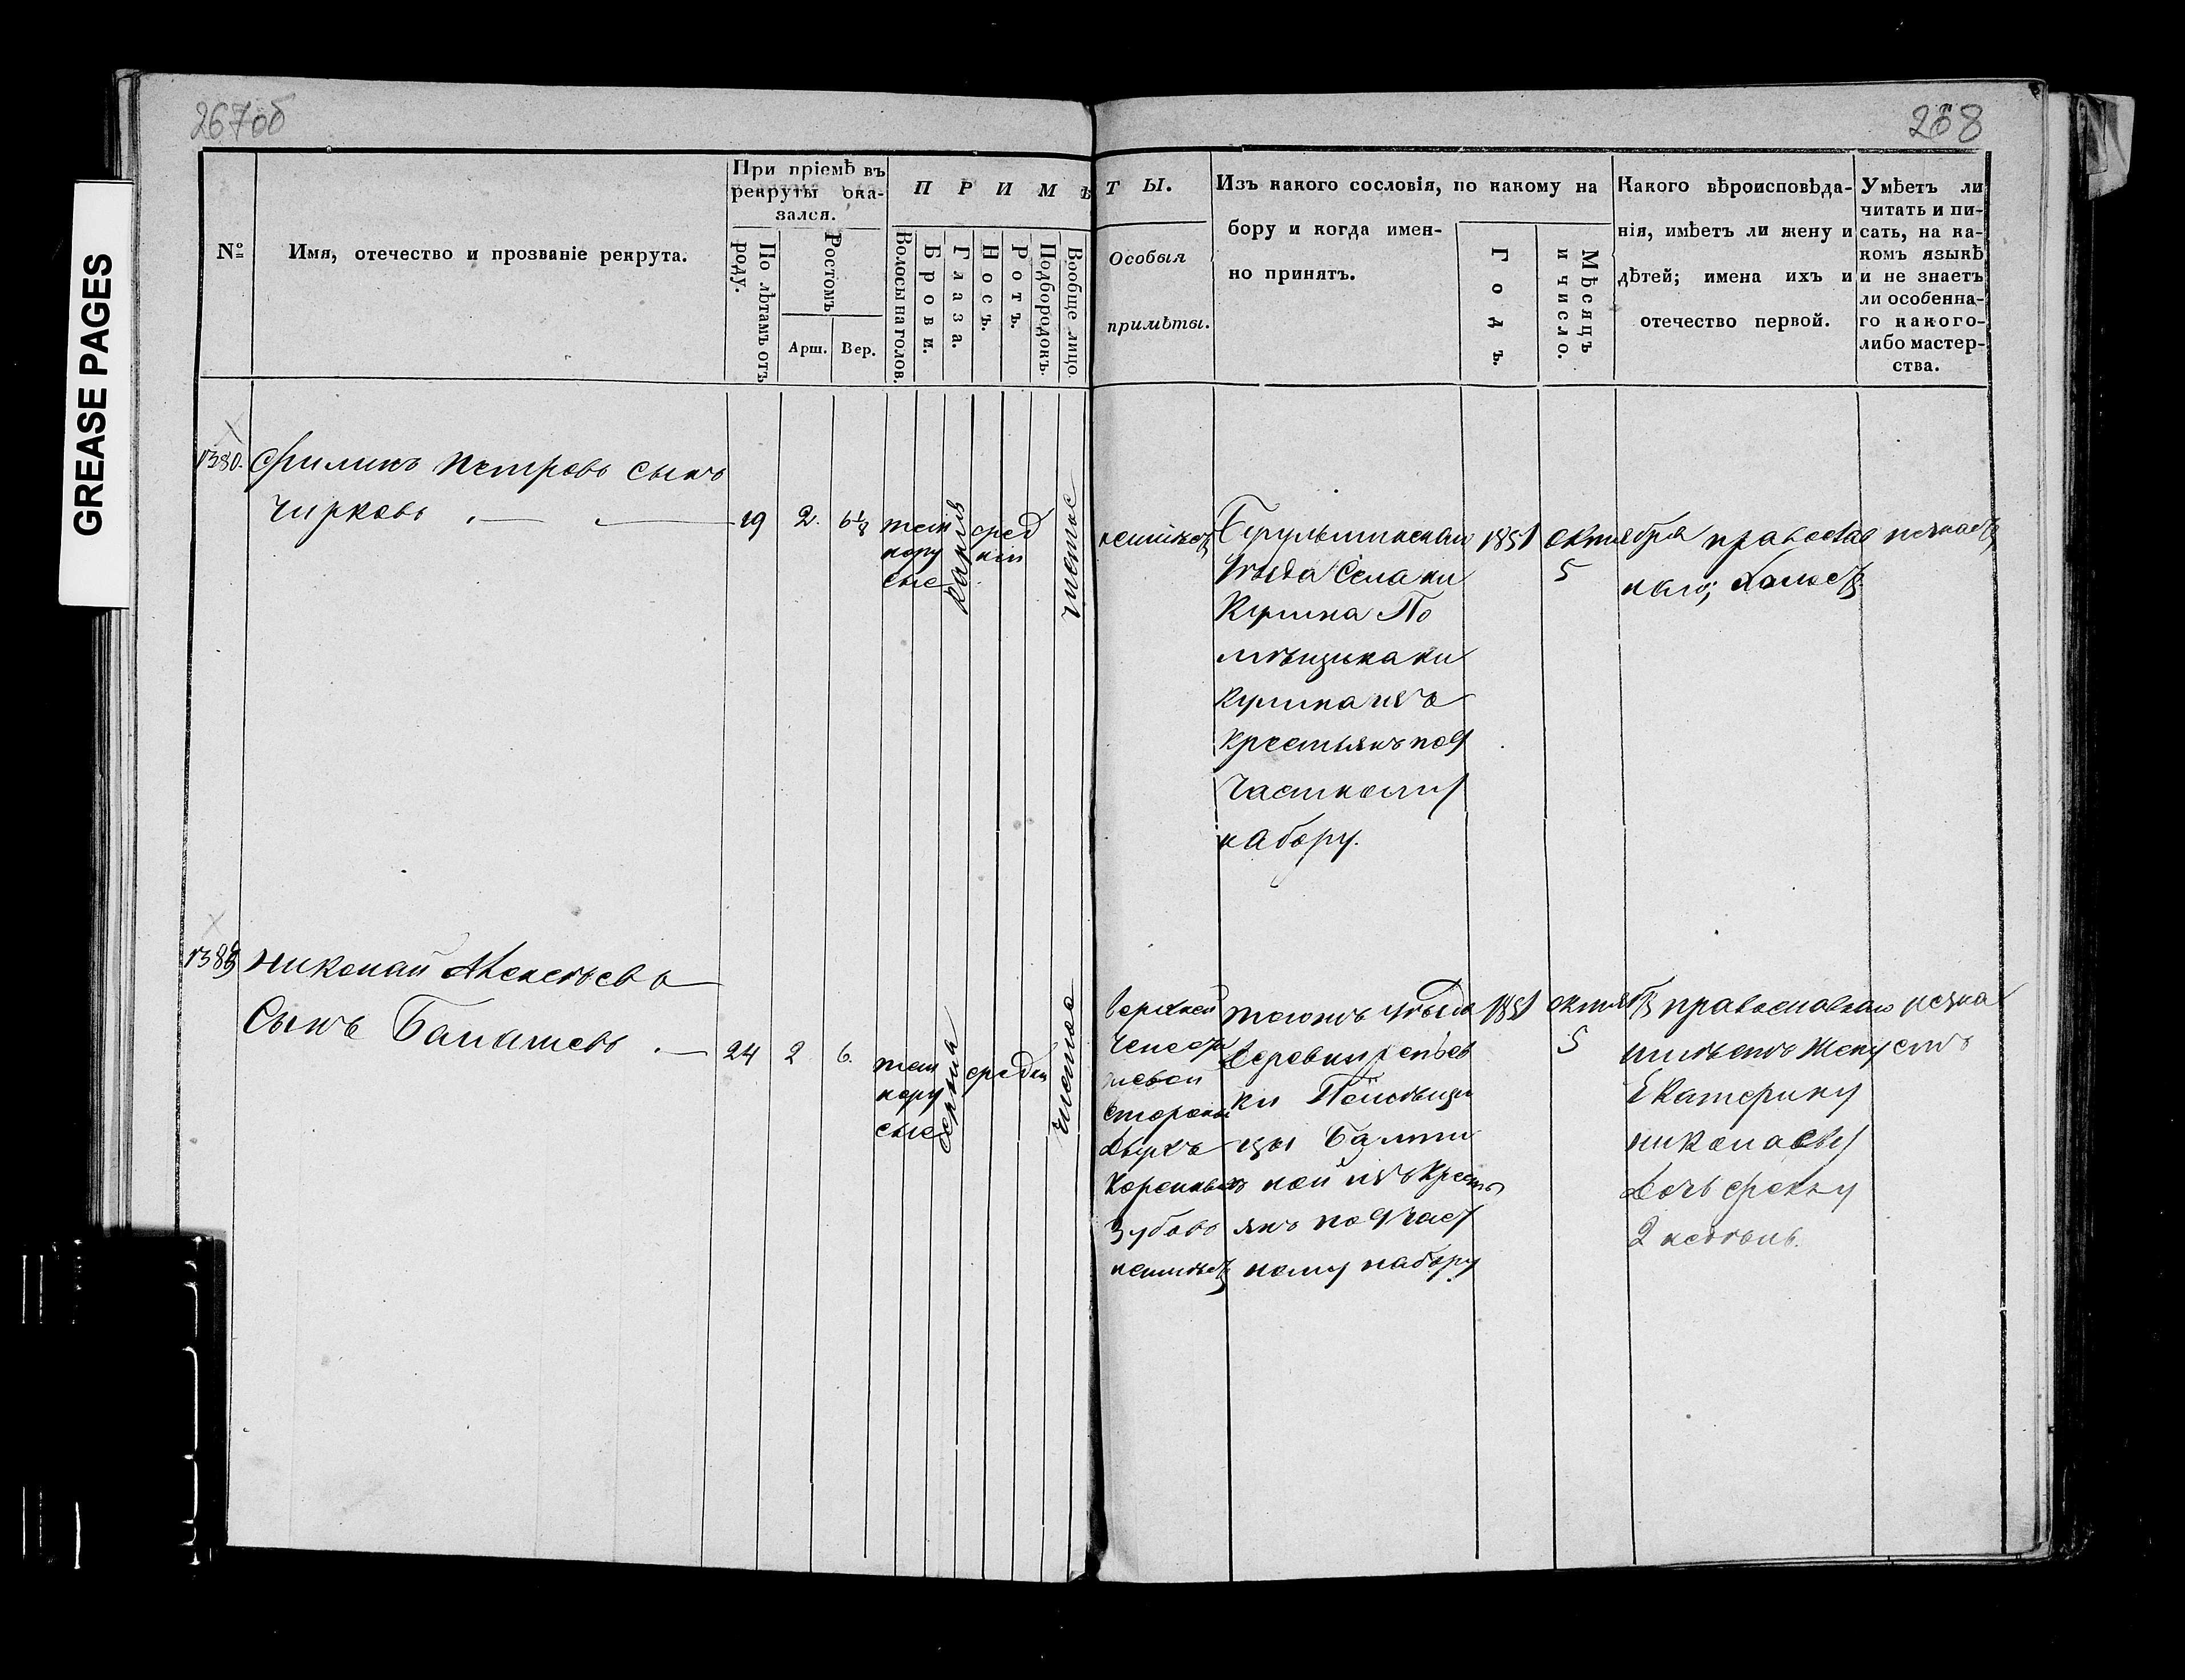 GREASE PAGES
267об
268
№
Имя, отечество и прозваніе рекрута.
При пріемѣ въ
рекруты ока-
зался.
По лѣтамъ отъ
роду.
Ростомъ
Арш.
Вер.
ПРИМѢТЫ.
Волосы на голов.
Брови.
Глаза.
Носъ.
Ротъ.
Подбородокъ.
Вообще лицо.
Особыя
примѣты.
Изъ какого сословія, по какому на
бору и когда имен-
но принятъ.
Годъ.
Мѣсяцъ
и число.
Какого вѣроисповѣда-
нія, имѣетъ ли жену и
дѣтей; имена ихъ и
отечество первой.
Умѣетъ ли
читать и пи-
сать, на ка-
комъ языкѣ
и не знаетъ
ли особенна-
го какого-
либо мастер-
ства.
1380.
Филипъ Петровъ сынъ
Чирковъ
19
2.
6 1/8
темнорусые
каріе
средній
чистое
неимѣетъ
уѣзда Села Ни
Кулина По
мѣщика Ни
Кулина изъ
крестьянъ по 9
Частному
набору.
1851
октября
5
православ
наго; холостъ
незнаетъ
Николай
Сынъ
24
2
6.
темнорусые
средній
чистое
Верхней
Челюсти
левой
стороны
двухъ
Коренныхъ
Зубовъ
неимѣетъ
тогожъ уѣзда
деревни
ки Помѣщи
цы
ной изъ Кресть
янъ по 9 част
ному набору
1851
октяб
5
православнаго
имѣетъ Жену
Екатерину
николаеву
дочь
2
незна
етъ